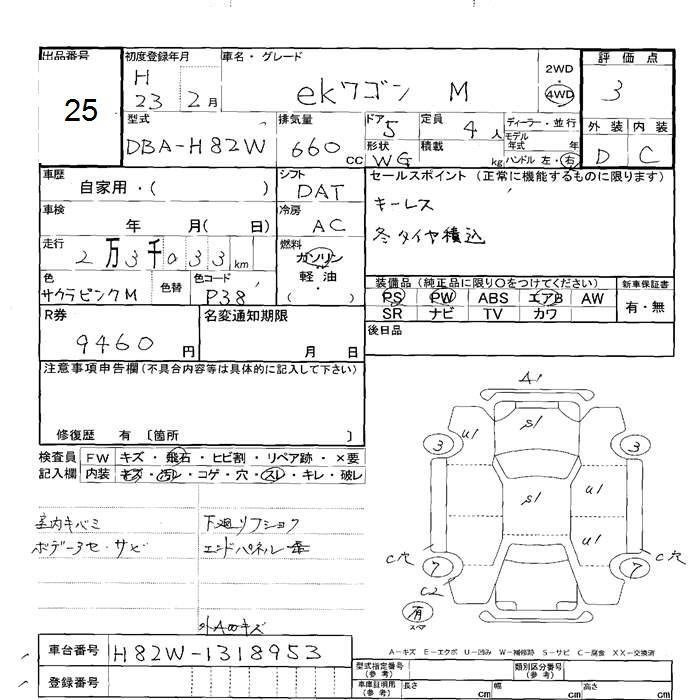 出品番号 初度登録年月 車名・グレード 評価点
25 H 23 2月 ekワゴン M 2WD 4WD 3
型式 排気量 ドア 5 定員 4人 ディーラー・並行 外装 内装
DBA-H82W 660cc 形状 WG 積載 kg モデル年式 年 ハンドル 左・右 D C
車歴 シフト セールスポイント (正常に機能するものに限ります)
自家用・( ) DAT キーレス
車検 年 月( 日) 冷房 AC 冬タイヤ積込
走行 2万3千033km 燃料 ガソリン・軽油 ( ・ )
色 サクラピンクM 色替 色コード P38 装備品 (純正品に限り○をつけてください) 新車保証書
PS PW ABS エアB AW 有・無
SR ナビ TV カワ
R券 9460円 名変通知期限 月 日 後日品
注意事項申告欄(不具合内容等は具体的に記入して下さい)
修復歴 有 〔箇所 〕
検査員 FW キズ・飛石・ヒビ割・リペア跡・×要
記入欄 内装 キズ・汚レ・コゲ・穴・スレ・キレ・破レ
A1
U1 S1
3 3
S1 U1
U1
C穴 7 7 C穴
C2
有
スペア
室内キバミ 下廻リフショク
ボデー3セ・サビ エンドパネル
外Aωキズ
A-キズ E-エクボ U-凹み W-補修跡 S-サビ C-腐食 XX-交換済
車台番号 H82W-1318953
型式指定番号(参考) 類別区分番号(参考)
登録番号
車庫証明用(参考) 長さ cm 幅 cm 高さ cm